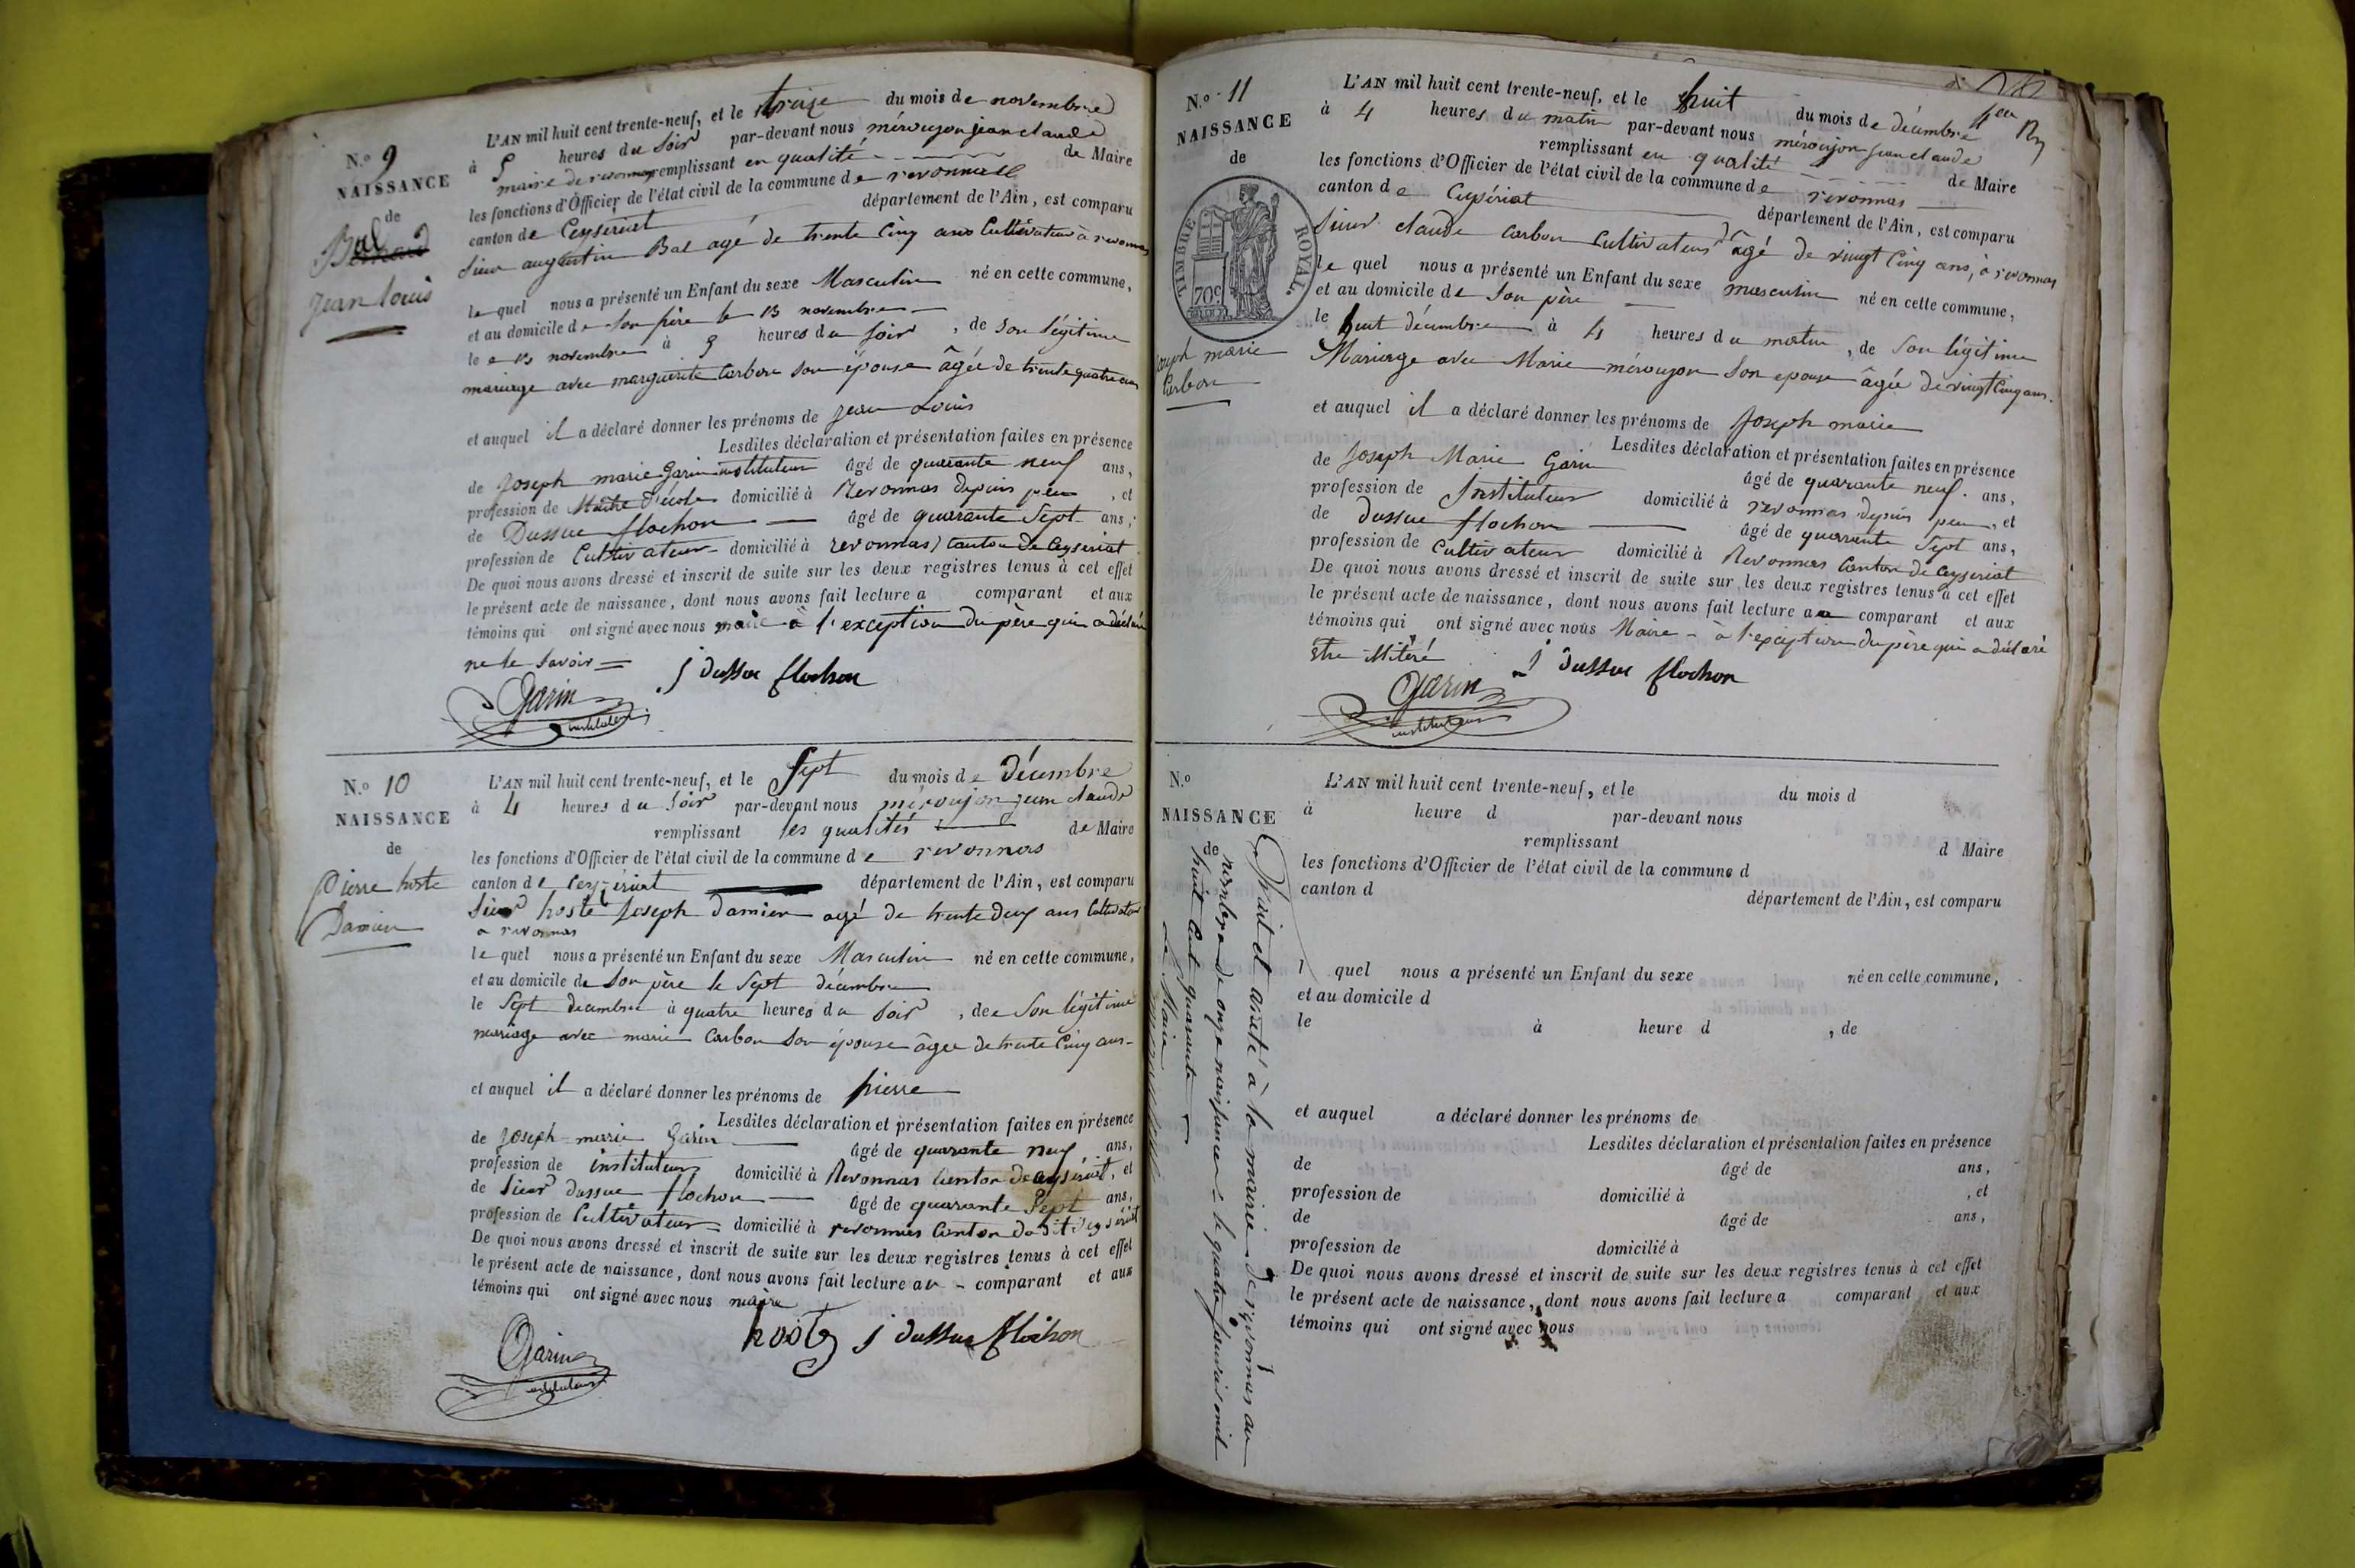 N.o 9
NAISSANCE
de
Bal
Bernard
jean louis
L'AN mil huit cent trente-neuf, et le treize du mois de novembre
à 5 heures du soir par-devant nous mérougon jean claude
maire de revonnas remplissant en qualité de Maire
les fonctions d'Officier de l'état civil de la commune de revonnas
canton de Ceyseriat département de l'Ain, est comparu
Sieur augustin Bal agé de trente Cinq ans Cultivateur à revonnas
lequel nous a présenté un Enfant du sexe Masculin né en cette commune,
et au domicile de son père le 13 novembre
le 13 novembre à 3 heures du soir, de son légitime
mariage avec marguerite Carbon son épouse âgée de trente quatre ans
et auquel il a déclaré donner les prénoms de jean Louis
Lesdites déclaration et présentation faites en présence
de joseph marie Garin instituteur âgé de quarante neuf ans,
profession de Maitre d'école domicilié à Revonnas depuis peu, et
de Dussuc flochon âgé de quarante Sept ans,
profession de Cultivateur domicilié à revonnas, canton de Ceyseriat
De quoi nous avons dressé et inscrit de suite sur les deux registres tenus à cet effet
le présent acte de naissance, dont nous avons fait lecture a comparant et aux
témoins qui ont signé avec nous maire à l'exception du père qui a déclaré
ne le savoir =
j dussuc flochon
Garin
instituteur
N.o 10
NAISSANCE
de
Pierre hoste
Damien
L'AN mil huit cent trente-neuf, et le Sept du mois de Décembre
à 4 heures du soir par-devant nous mérougon jean claude
remplissant les qualités de Maire
les fonctions d'Officier de l'état civil de la commune de revonnas
canton de Ceyzériat département de l'Ain, est comparu
Sieur hoste Joseph Damien agé de trente deux ans Cultivateur
a revonnas
lequel nous a présenté un Enfant du sexe Masculin né en cette commune,
et au domicile de son père le Sept décembre
le Sept decembre à quatre heures du soir, de son légitime
mariage avec marie Carbon son épouse âgée de trente Cinq ans
et auquel il a déclaré donner les prénoms de pierre
Lesdites déclaration et présentation faites en présence
de joseph marie Garin âgé de quarante neuf ans,
profession de instituteur domicilié à Revonnas Canton de Ceysériat, et
de Sieur dussuc flochon âgé de quarante Sept ans,
profession de Cultivateur domicilié à revonnas Canton
De quoi nous avons dressé et inscrit de suite sur les deux registres tenus à cet effet
le présent acte de naissance, dont nous avons fait lecture au comparant et aux
témoins qui ont signé avec nous maire
hoste j dussuc flochon
Garin
instituteur
N.o 11
NAISSANCE
de
TIMBRE ROYAL.
70c
joseph marie
Carbon
L'AN mil huit cent trente-neuf, et le huit du mois de décembre
à 4 heures du matin par-devant nous mérougon jean claude
remplissant en qualité de Maire
les fonctions d'Officier de l'état civil de la commune de revonnas
canton de Ceysériat département de l'Ain, est comparu
Sieur claude Carbon Cultivateur âgé de vingt Cinq ans, à revonnas
lequel nous a présenté un Enfant du sexe masculin né en cette commune,
et au domicile de son père
le huit décembre à 4 heures du matin, de son légitime
Mariage avec Marie mérougon son epouse âgée de vingt Cinq ans.
et auquel il a déclaré donner les prénoms de Joseph marie
Lesdites déclaration et présentation faites en présence
de Joseph Marie Garin âgé de quarante neuf. ans,
profession de Instituteur domicilié à revonnas depuis peu, et
de dussuc flochon âgé de quarante Sept ans,
profession de Cultivateur domicilié à Revonnas Canton de Ceyseriat
De quoi nous avons dressé et inscrit de suite sur les deux registres tenus à cet effet
le présent acte de naissance, dont nous avons fait lecture au comparant et aux
témoins qui ont signé avec nous Maire à l'exception du père qui a déclaré
être illitéré
j dussuc flochon
Garin
instituteur
N.o
NAISSANCE
de
L'AN mil huit cent trente-neuf, et le du mois d
à heure d par-devant nous
remplissant d Maire
les fonctions d'Officier de l'état civil de la commune d
canton d département de l'Ain, est comparu
l quel nous a présenté un Enfant du sexe né en cette commune,
et au domicile d
le à heure d , de
et auquel a déclaré donner les prénoms de
Lesdites déclaration et présentation faites en présence
de âgé de ans,
profession de domicilié à , et
de âgé de ans,
profession de domicilié à
De quoi nous avons dressé et inscrit de suite sur les deux registres tenus à cet effet
le présent acte de naissance, dont nous avons fait lecture a comparant et aux
témoins qui ont signé avec nous
Fait et arrêté à la mairie de revonnas au
nombre de onze naissances le quatre janvier mil
huit Cent quarante
Le Maire